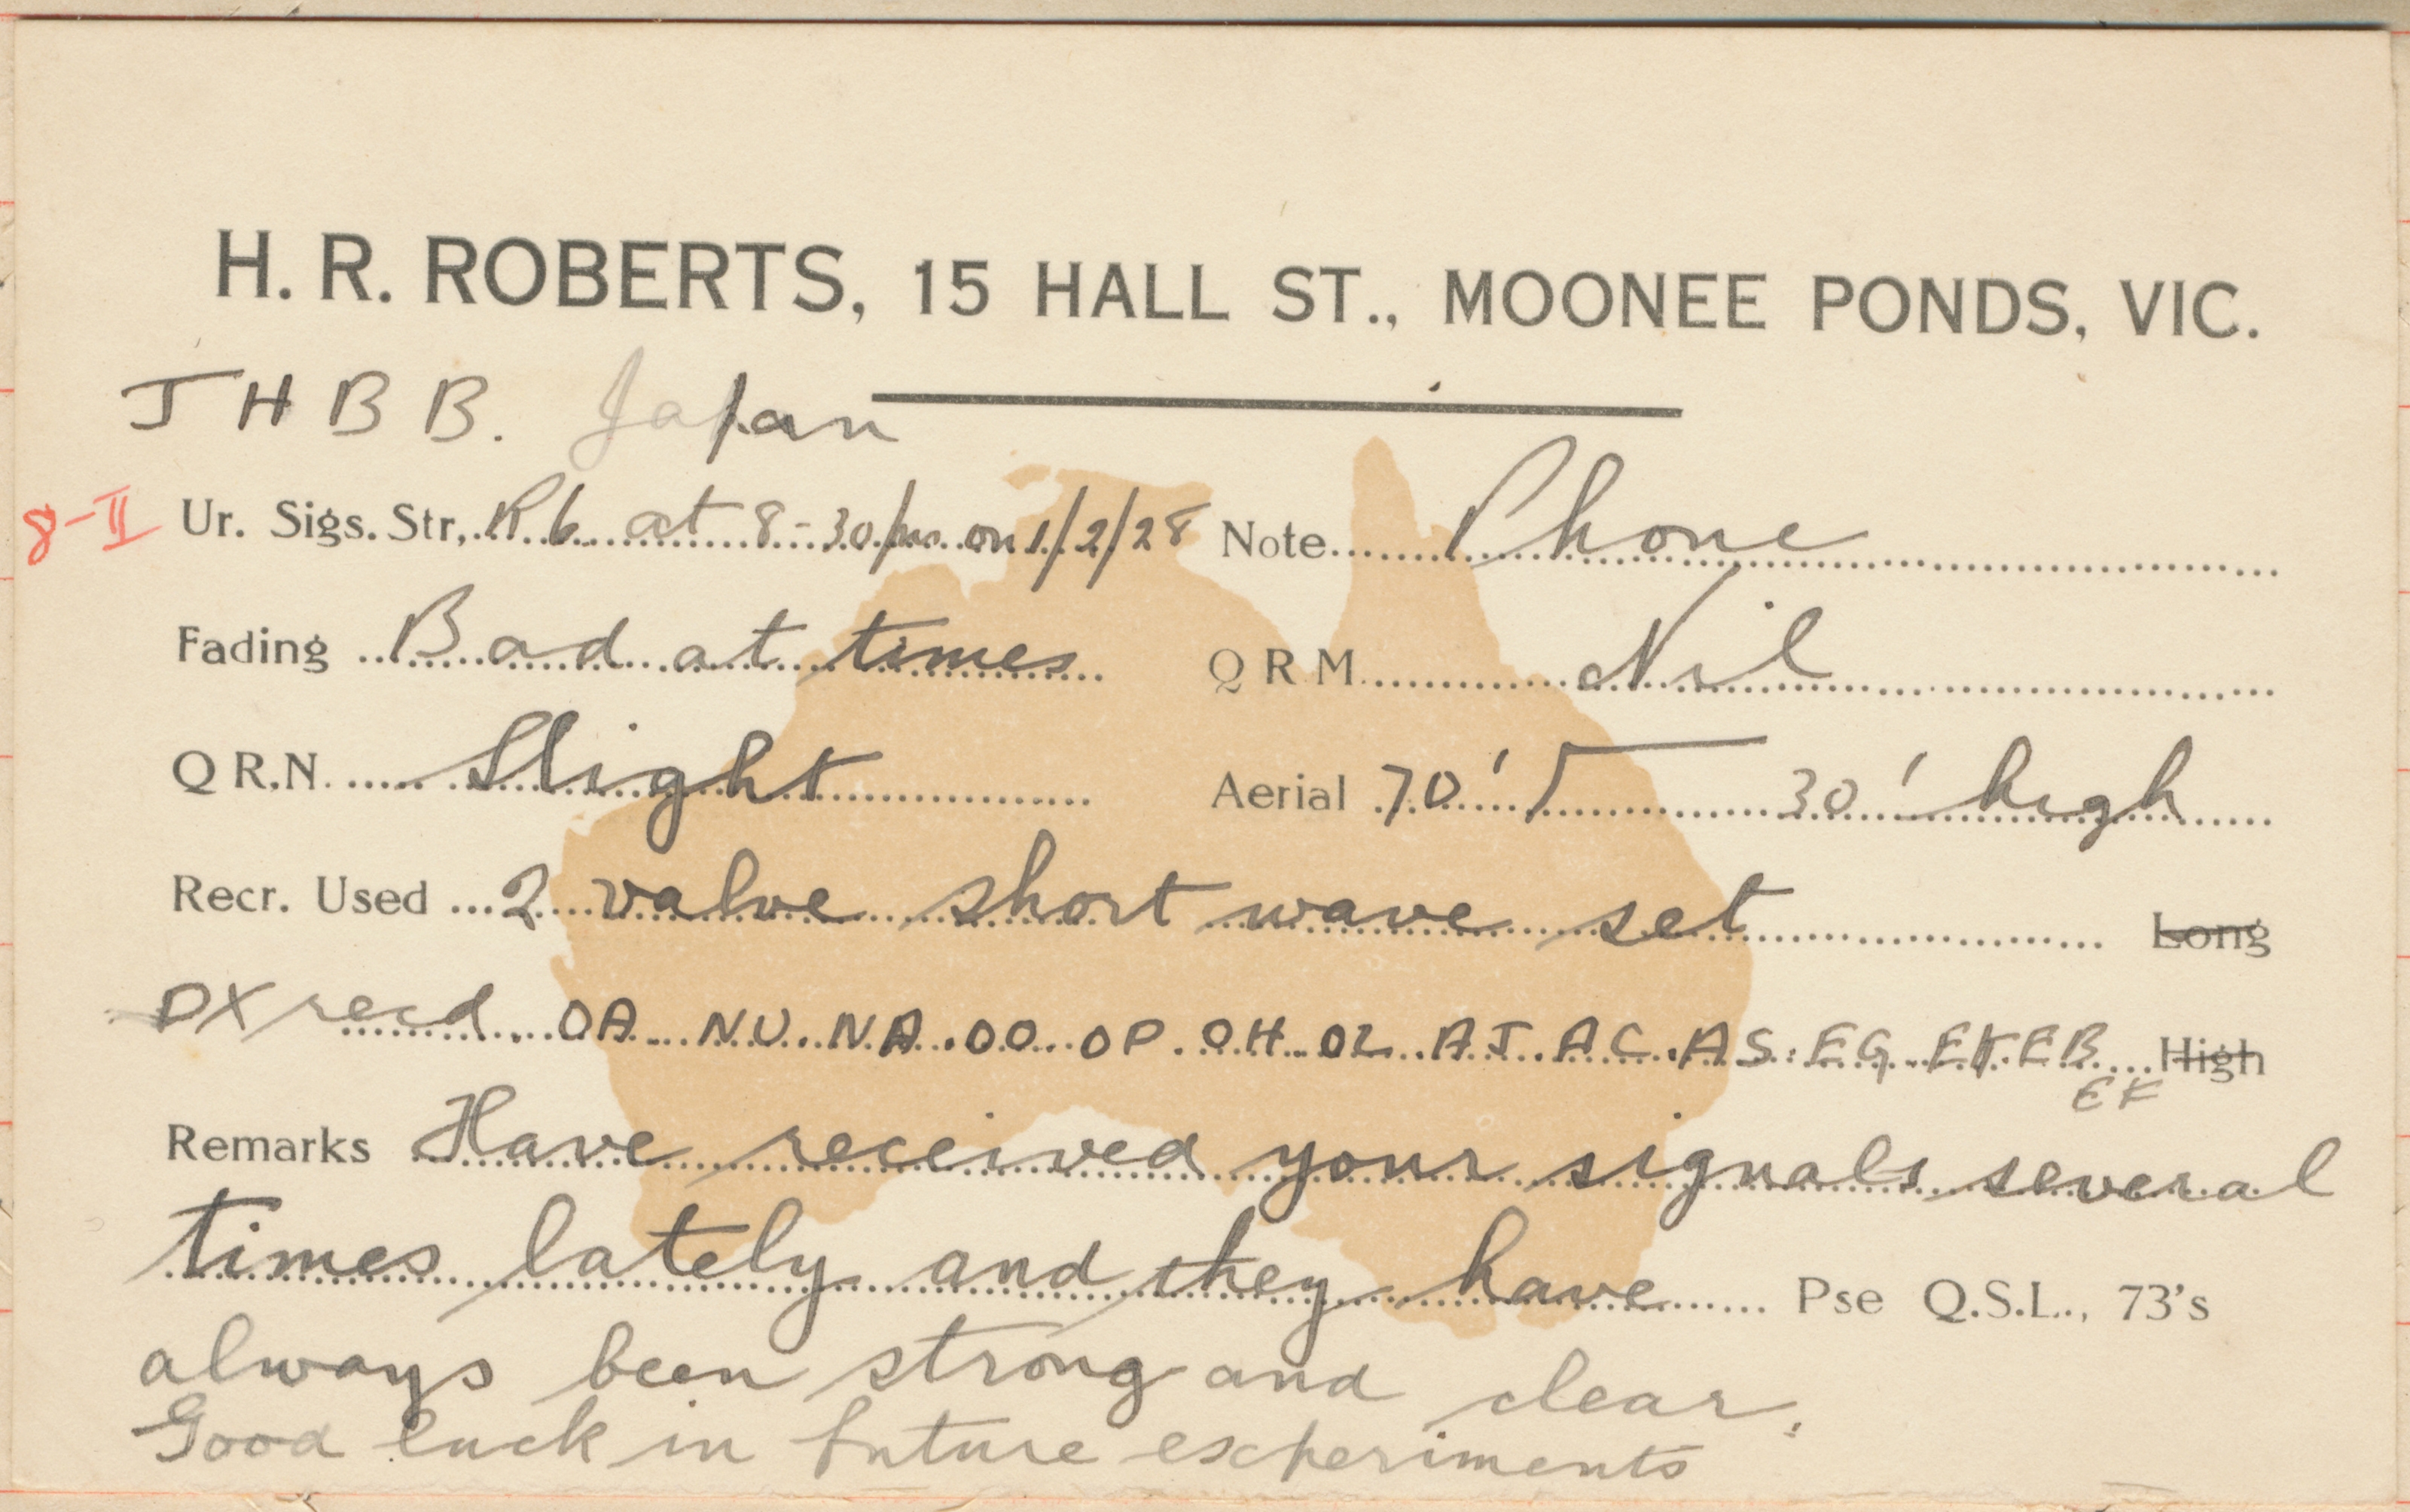 H. R. ROBERTS, 15 HALL ST., MOONEE PONDS, VIC.
JHBB. Japan
8-II Ur. Sigs. Str, R6 at 8-30 pm on 1/2/28 Note Phone
Fading Bad at times QRM Nil
QR.N. Slight Aerial 70' 30' high
Recr. Used 2 valve short wave set Long
DX recd OA NU NA OO OP OH OZ AJ AC AS EG EB High
EK
Remarks Have received your signals several
times lately and they have Pse Q.S.L., 73's
always been strong and clear.
Good luck in future experiments